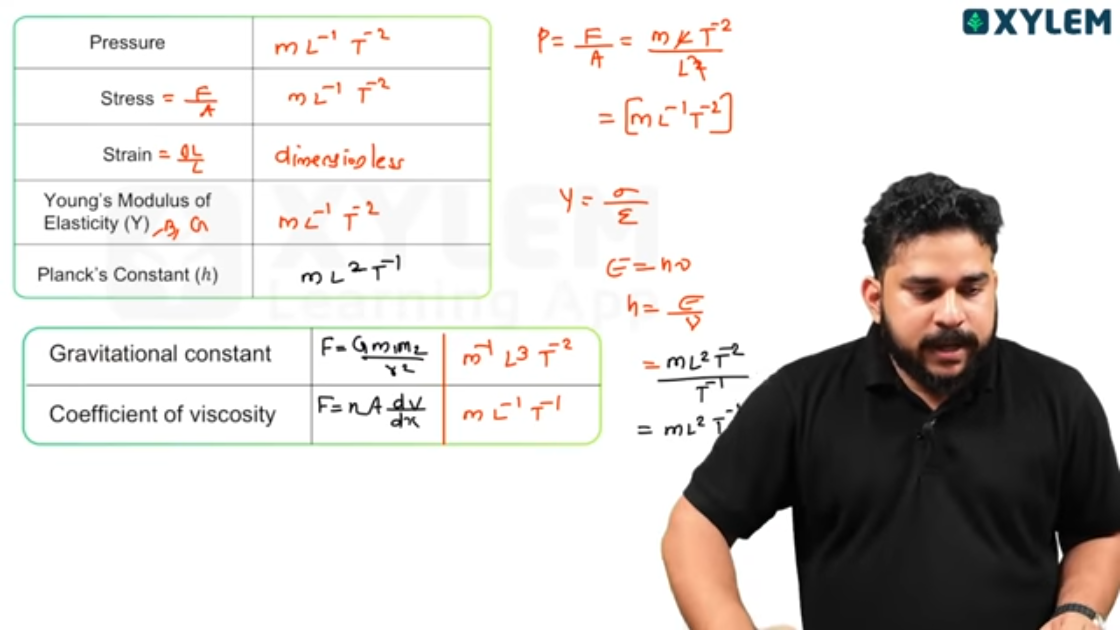 XYLEM
Pressure
mL⁻¹ T⁻²
Stress = F/A
mL⁻¹ T⁻²
Strain = ΔL/L
dimensionless
Young's Modulus of
Elasticity (Y), B, G
mL⁻¹ T⁻²
Planck's Constant (h)
mL²T⁻¹
Gravitational constant
F = Gm₁m₂/r²
m⁻¹ L³ T⁻²
Coefficient of viscosity
F = ηA dv/dx
mL⁻¹ T⁻¹
P = F/A = mLT⁻²/L²
= [mL⁻¹T⁻²]
Y = σ/ε
E = hν
h = E/ν
= mL²T⁻²/T⁻¹
= mL² T⁻¹
XYLEM
Learning App